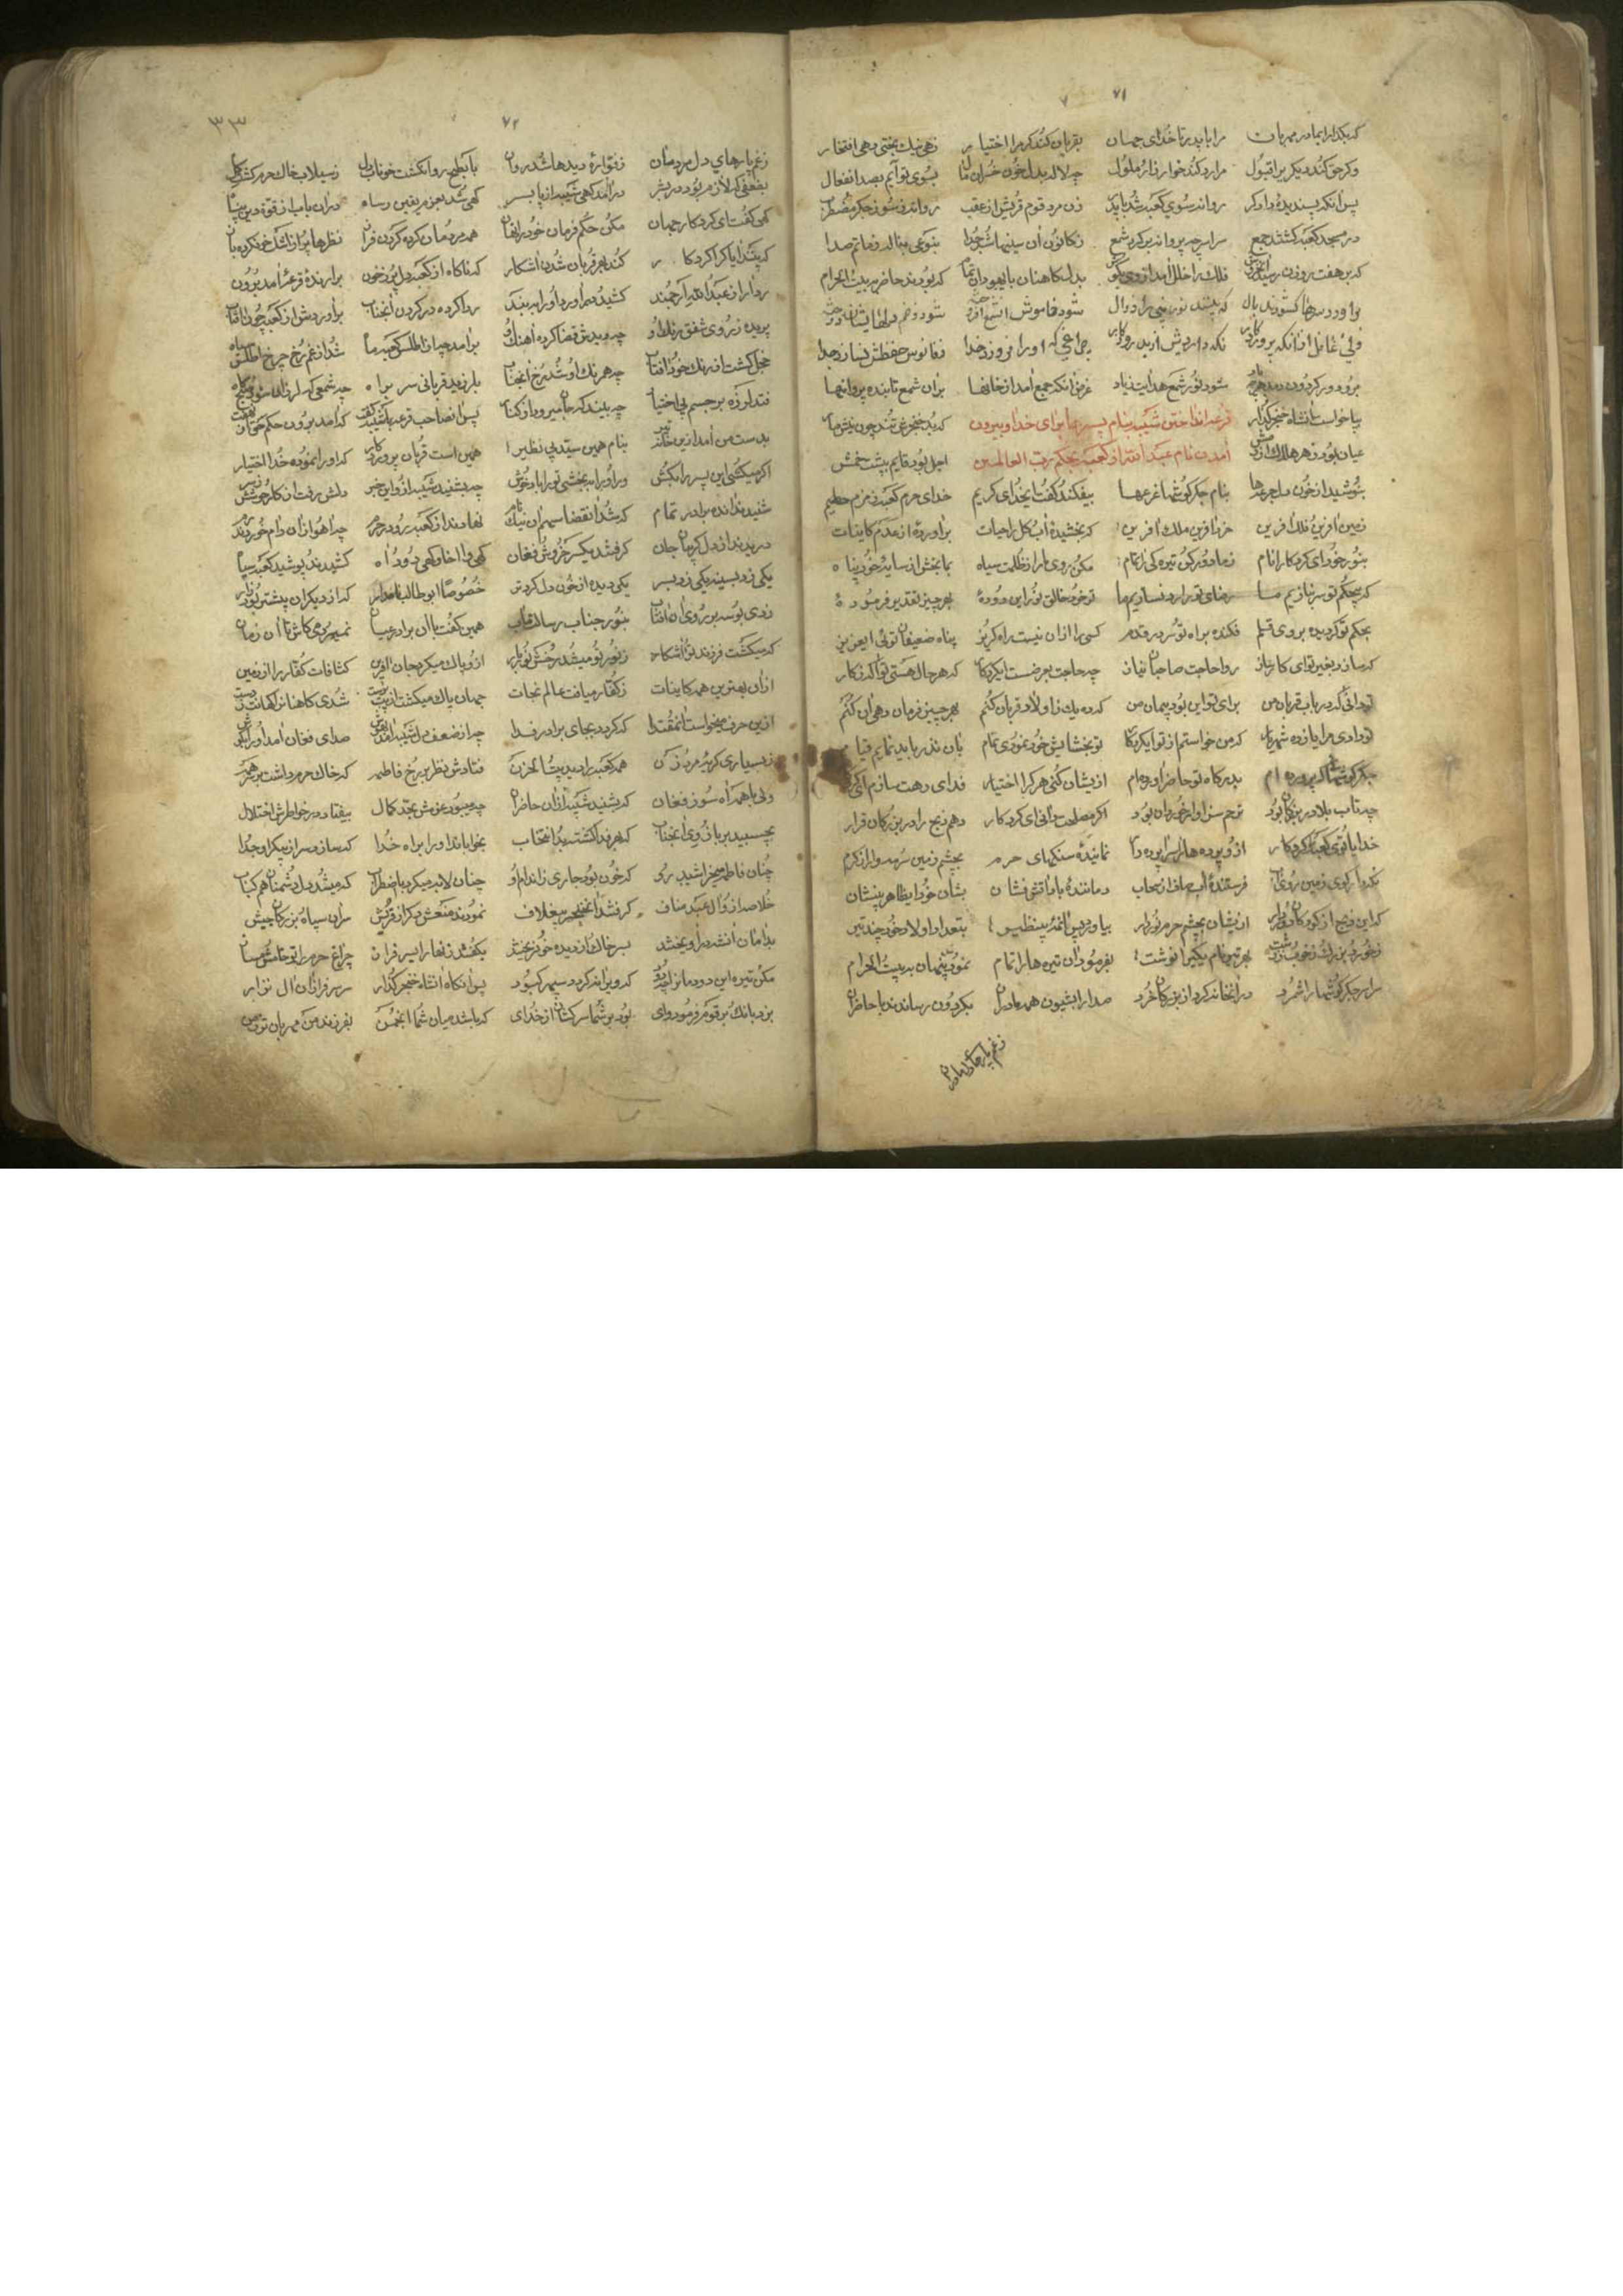 ۷۱
که بگذار ایمادر مهربان مرا با پدر تا خدای جهان بقربان کند گر مرا اختیار زهی نیک بختی زهی افتخار
وگر حق کند دیگری را قبول مرا رد کند خوار و زار و ملول چه لاله بدل خون بسوی تو آیم بصد انفعال
پس آنکه پسندیده دادگر روانه سوی کعبه شد با پدر زن و مرد قوم قریش از عقب روانه ز سوز جگر مضطرب
در مسجد کعبه گشتند جمع سراسر چه پروانه بر گرد شمع ز کانون آن سینها شد جدا بنوعی بناله ز ماتم صدا
که بر هفت روزن رسید فلک را خلل آمد از وی بدل کاهنان با یهودان تمام که بودند حاضر به بیت الحرام
براورد سرها گشودند بال که بینند نور نبی را زوال شود خاموش
ولی غافل از آنکه پروردگار نگه داردش از بد روزگار چراغی که او را فروزد خدا ز فانوس حفظش نسازد جدا
شود نور شمع هدایت زیاد غرض آنکه جمع آمد از خانها بران شمع تابنده پروانها
بپا خواست آنشاه خنجر گذار قرعه انداختن شیبه بنام پسرها برای خدا و بیرون که بد خنجری تند چون نیش مار
عیان بود زهر هلاک از آمدن نام عبد الله از کعبه بحکم رب العالمین اجل بود قایم بپشت خمش
بنوشید از خون دل جرعها بنام جگر گوشها قرعها بیفکند گفت ایخدای کریم خدای حرم کعبه زمزم حطیم
زمین آفرین فلک آفرین خرد آفرین ملک آفرین که بخشیدهٔ آب گل را حیات براوردهٔ از عدم کاینات
بنور خود ای کردکار انام ز ما دور کن تیره کی را تمام مکن روی ما را ز ظلمت سیاه بما بخش از سایهٔ خود پناه
که پیچیم ز حکم تو سر نازیم ما رضای تو را رد نسازیم ما تو خود خالق نور این دودهٔ بهر چیز تقدیر فرمودهٔ
بحکم تو گردیده بر وی قلم فکنده براه تو سر در قدم کسی را ازان نیست راه گریز پناه ضعیفان توئی ایعزیز
که سازد بغیر تو ای کارساز روا حاجت صاحبان نیاز چه حاجت بعرضست ایکردکار که هر حال هستی تو آگه ز کار
تو دانی که در باب قربان من برای تو این بود پیمان من که ده یک ز اولاد قربان کنم بهر چیز فرمان دهی آن کنم
تو دادی مرا یازده شهریار که من خواستم از تو ایکردکار تو بخشایش خود نمودی تمام بان نذر باید نمایم قیام
جگر گوشها که پرورده ام بدرگاه تو حاضر آورده ام ازیشان کنی هر کرا اختیار فدای رهت سازم
چه تاب بلا در بزرکان بود ترحم سزاوار خردان بود اگر مصلحت دانی ای کردکار دهم ذبح را در بزرکان قرار
خدایا توئی کعبه را کردکار ازو پرده ها را سراپرده دار نمایندهٔ سنکهای حرم بچشم زمین سرمه وار از کرم
فرستندهٔ آب صاف از سحاب دمانندهٔ باد آتش فشان بشان خود ایظاهر بی نشان
که این ذبح از کودکان دور دار ازیشان بچشم حرم نور دار بتعداد اولاد خود چند تیر
بهر تیر نام یکیرا نوشت بفرمود آن تیره ها را تمام نمودند پنهان به بیت الحرام
سراسر جگر گوشها را شمرد درانخانه کرد از بزرکان خرد صدا را بشیون همه مادران بکردون رساندند با حاضران
ز غم پارهای دل مادران

۳۳
۷۲
ز غم پارهای دل مردمان ز فوارهٔ دیدها شد روان بابطح روان گشت خوناب دل ز سیلاب خاک حرم گشت گل
بضعفی که لازم بود در بشر درآمد گهی شیبه از پا بسر گهی شد بعزم یقین رساه دران باب از قوة دین بپا
گهی گفت ای کردکار جهان مکن حکم فرمان خود را نهان همه مردمان کرده گردن فراز نظرها پر از اشک خم کرده باز
که بیند ایا کرا کردکار کند بهر قربان شدن آشکار که ناگاه از کعبه دل پر ز خون برارندهٔ قرعه آمد برون
ردا را ز عبد الله ارجمند کشید در آورد او را ببند ردا کرده در کردن آنجناب براوردش از کعبه چون آفتاب
پریده ز روی شفق رنک او چه دیدش قضا کرده آهنک او برآمد چه از اطلس کعبه ماه شد از غم رخ چرخ اطلس سیاه
خجل گشت از رنک خود آفتاب چه همرنک او شد رخ آنجناب بلرزید قربانی سر براه چه شمعی که لرزان شود صبحگاه
فتد لرزه بر جسم بی اختیار چه بیند که جان میرود از کنار پس آن صاحب قرعه با شیبه گفت که آمد برون حکم حق از نهفت
بدست من آمد ازین خانه تیر بنام همین سید بی نظیر همین است قربان پروردکار که او را نموده خدا اختیار
اگر میکشی این پسر را بکش ورا را به بخشی تو را باد خوش چه بشنید شیبه ازو این خبر دلش رفت از کار
شنیدند آنده برادر تمام که شد از قضا سهم آن نیک نام نهادند از کعبه رو در حرم چه آهو ازان دام خوردند رم
دریدند از دل گریبان جان گرفتند یکسر خروش فغان گهی وا اخا و گهی دود آه کشیدند پوشید کعبه سیاه
یکی زد بسینه یکی زد بسر یکی دیده از خون دل کرد تر خصوصا ابوطالب نامدار که از دیگران بیشتر بود زار
زدی بوسه بر روی آن آفتاب بنور جناب رسالت مآب همین گفت با آن برادر عیان نمیبودمی کاش تا آن زمان
که میکشت فرزند تو آشکار ز نور تو میشد رخش نوربار ازو پاک میکرد جان آفرین کثافات کفار را از زمین
ازان بهترین همه کاینات ز کفتار مییافت عالم نجات جهان پاک میکشت از بت پرست شدی کاهنان را کهانت ز دست
ازین حرف میخواست آنمقتدا که کردد بجای برادر فدا چه از ضعف دل شیبه صدای فغان آمد او را بگوش
ز بسیاری گریهٔ مرد و زن همه کعبه را دید بیت الحزن فتادش نظر بر رخ فاطمه که خاک حرم داشت بر سر همه
ولی با همه آه سوز و فغان که بشنید شیبه ازان حاضران چه میبود عزمش بحد کمال نیفتاد در خواطرش اختلال
بچسبید بر بازوی آنجناب که بهر فدا گشته بد انتخاب بخواباند او را براه خدا که سازد سر از پیکر او جدا
چنان فاطمه میخراشید رو که خون بود جاری ز اندام او چنان لابه میکرد با اضطراب که میشد دل دشمنان هم کباب
خلاصه از وآل عبد مناف گرفتند آن خنجر بی غلاف نمودند منعش دگر از قریش سران سپاه و بزرکان جیش
بدامان آنشه در آویختند بسر خاک از دیده خون ریختند بگفتند زنهار ای سرفراز چراغ حرم را تو خامش مساز
مکن تیره این دودمان را چه دود که ویرانه گردد سپهر کبود پس آنکاه آنشاه خنجر گذار سر سرفرازان آل نزار
بزد بانک بر قوم فرمود وای بود بر شما سرکشان از خدای که باشد میان شما انجمن بفرزند من مهربان تر ز من